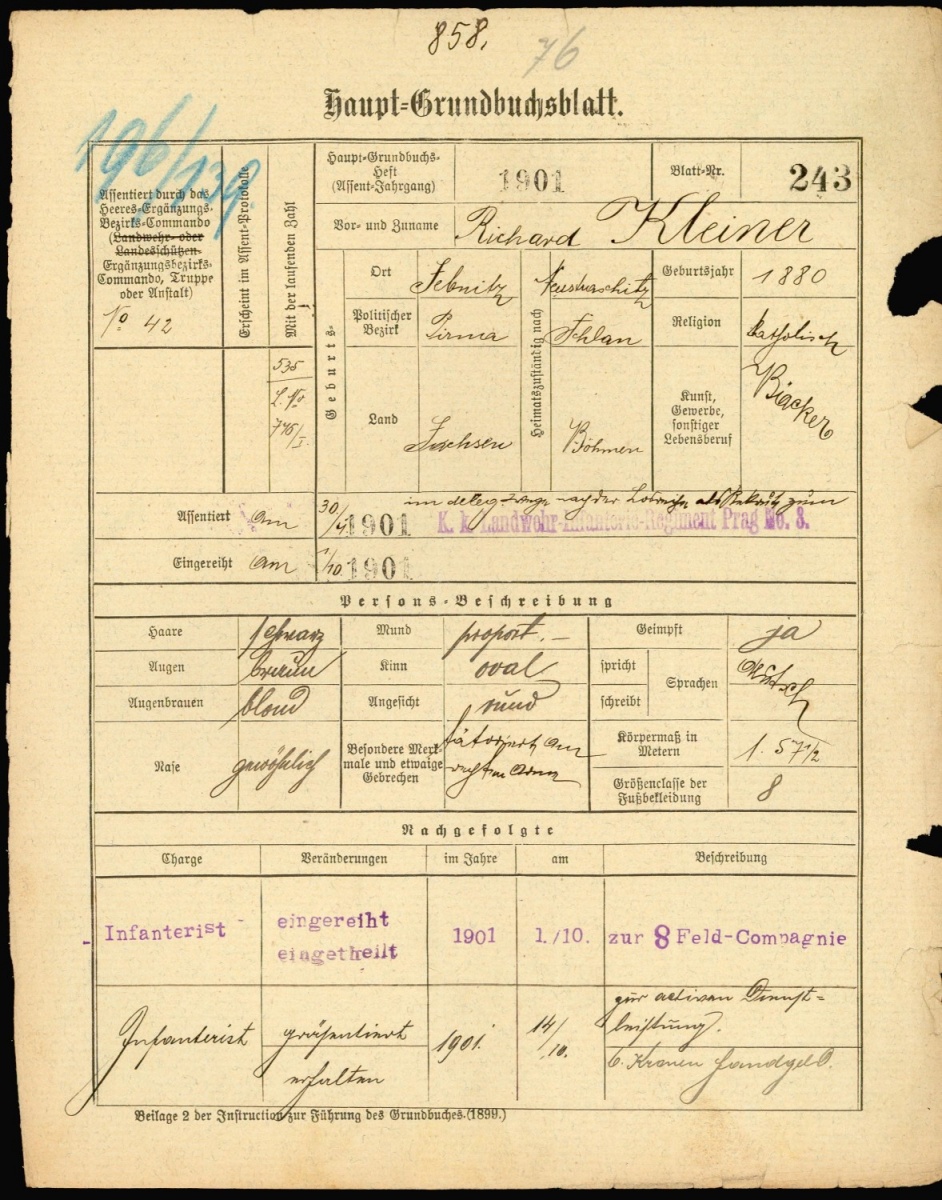 858.
76
Haupt=Grundbuchsblatt.
196/1939.
Assentiert durch das
Heeres-Ergänzungs-
Bezirks-Commando
(Landwehr- oder
Landesschützen-
Ergänzungsbezirks-
Commando, Truppe
oder Anstalt)
No 42
Erscheint im Assent-Protokolle
Mit der laufenden Zahl
535
L. No
Haupt-Grundbuchs-
Heft
(Assent-Jahrgang)
1901
Blatt-Nr.
243
Vor- und Zuname
Richard Kleiner
Geburts-
Ort
Sebnitz
Politischer
Bezirk
Pirna
Land
Sachsen
Heimatszuständig nach
Schlan
Böhmen
Geburtsjahr
1880
Religion
katholisch
Kunst,
Gewerbe,
sonstiger
Lebensberuf
Bäcker
Assentiert am
30/
1901
nach der als Rekrut zum
K. k. Landwehr-Infanterie-Regiment Prag No. 8.
Eingereiht am
1/10. 1901
Persons-Beschreibung
Haare schwarz
Mund proport. –
Geimpft ja
Augen braun
Kinn oval
spricht
schreibt
Sprachen
deutsch
Augenbrauen blond
Angesicht rund
Nase gewöhnlich
Besondere Merk-
male und etwaige
Gebrechen
tätoviert am
rechten Arm
Körpermaß in
Metern
1.57 1/2
Größenclasse der
Fußbekleidung
8
Nachgefolgte
Charge Veränderungen im Jahre am Beschreibung
Infanterist
eingereiht
eingetheilt
1901 1./10. zur 8 Feld-Compagnie
Infanterist
präsentiert
1901. 14/10.
zur activen Dienst=
leistung.
erhalten
6. Kronen Handgeld.
Beilage 2 der Instruction zur Führung des Grundbuches. (1899.)